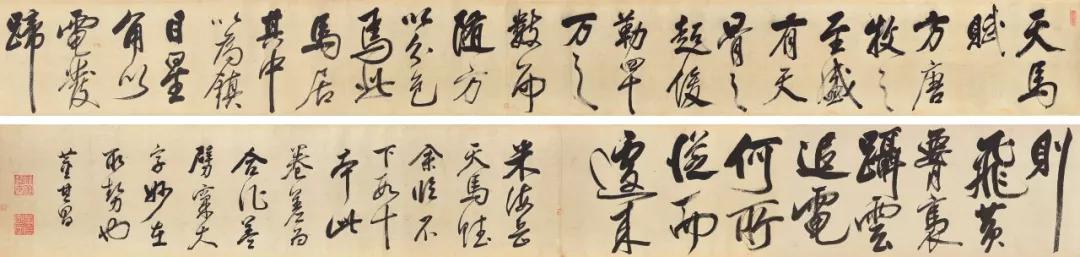 天馬
賦
方唐
牧之
至盛
有天
骨之
超俊
勒四十
万之
數而
隨方
以分色
焉此
馬居
其中
以為鎮
目星
角以
電發
蹄
則
飛黄
褭
躡雲
追電
何所
從而
遽来
米海岳
天馬賦
余臨不
下數十
本此
卷差為
合作蓋
擘窠大
字妙在
取勢也
董其昌